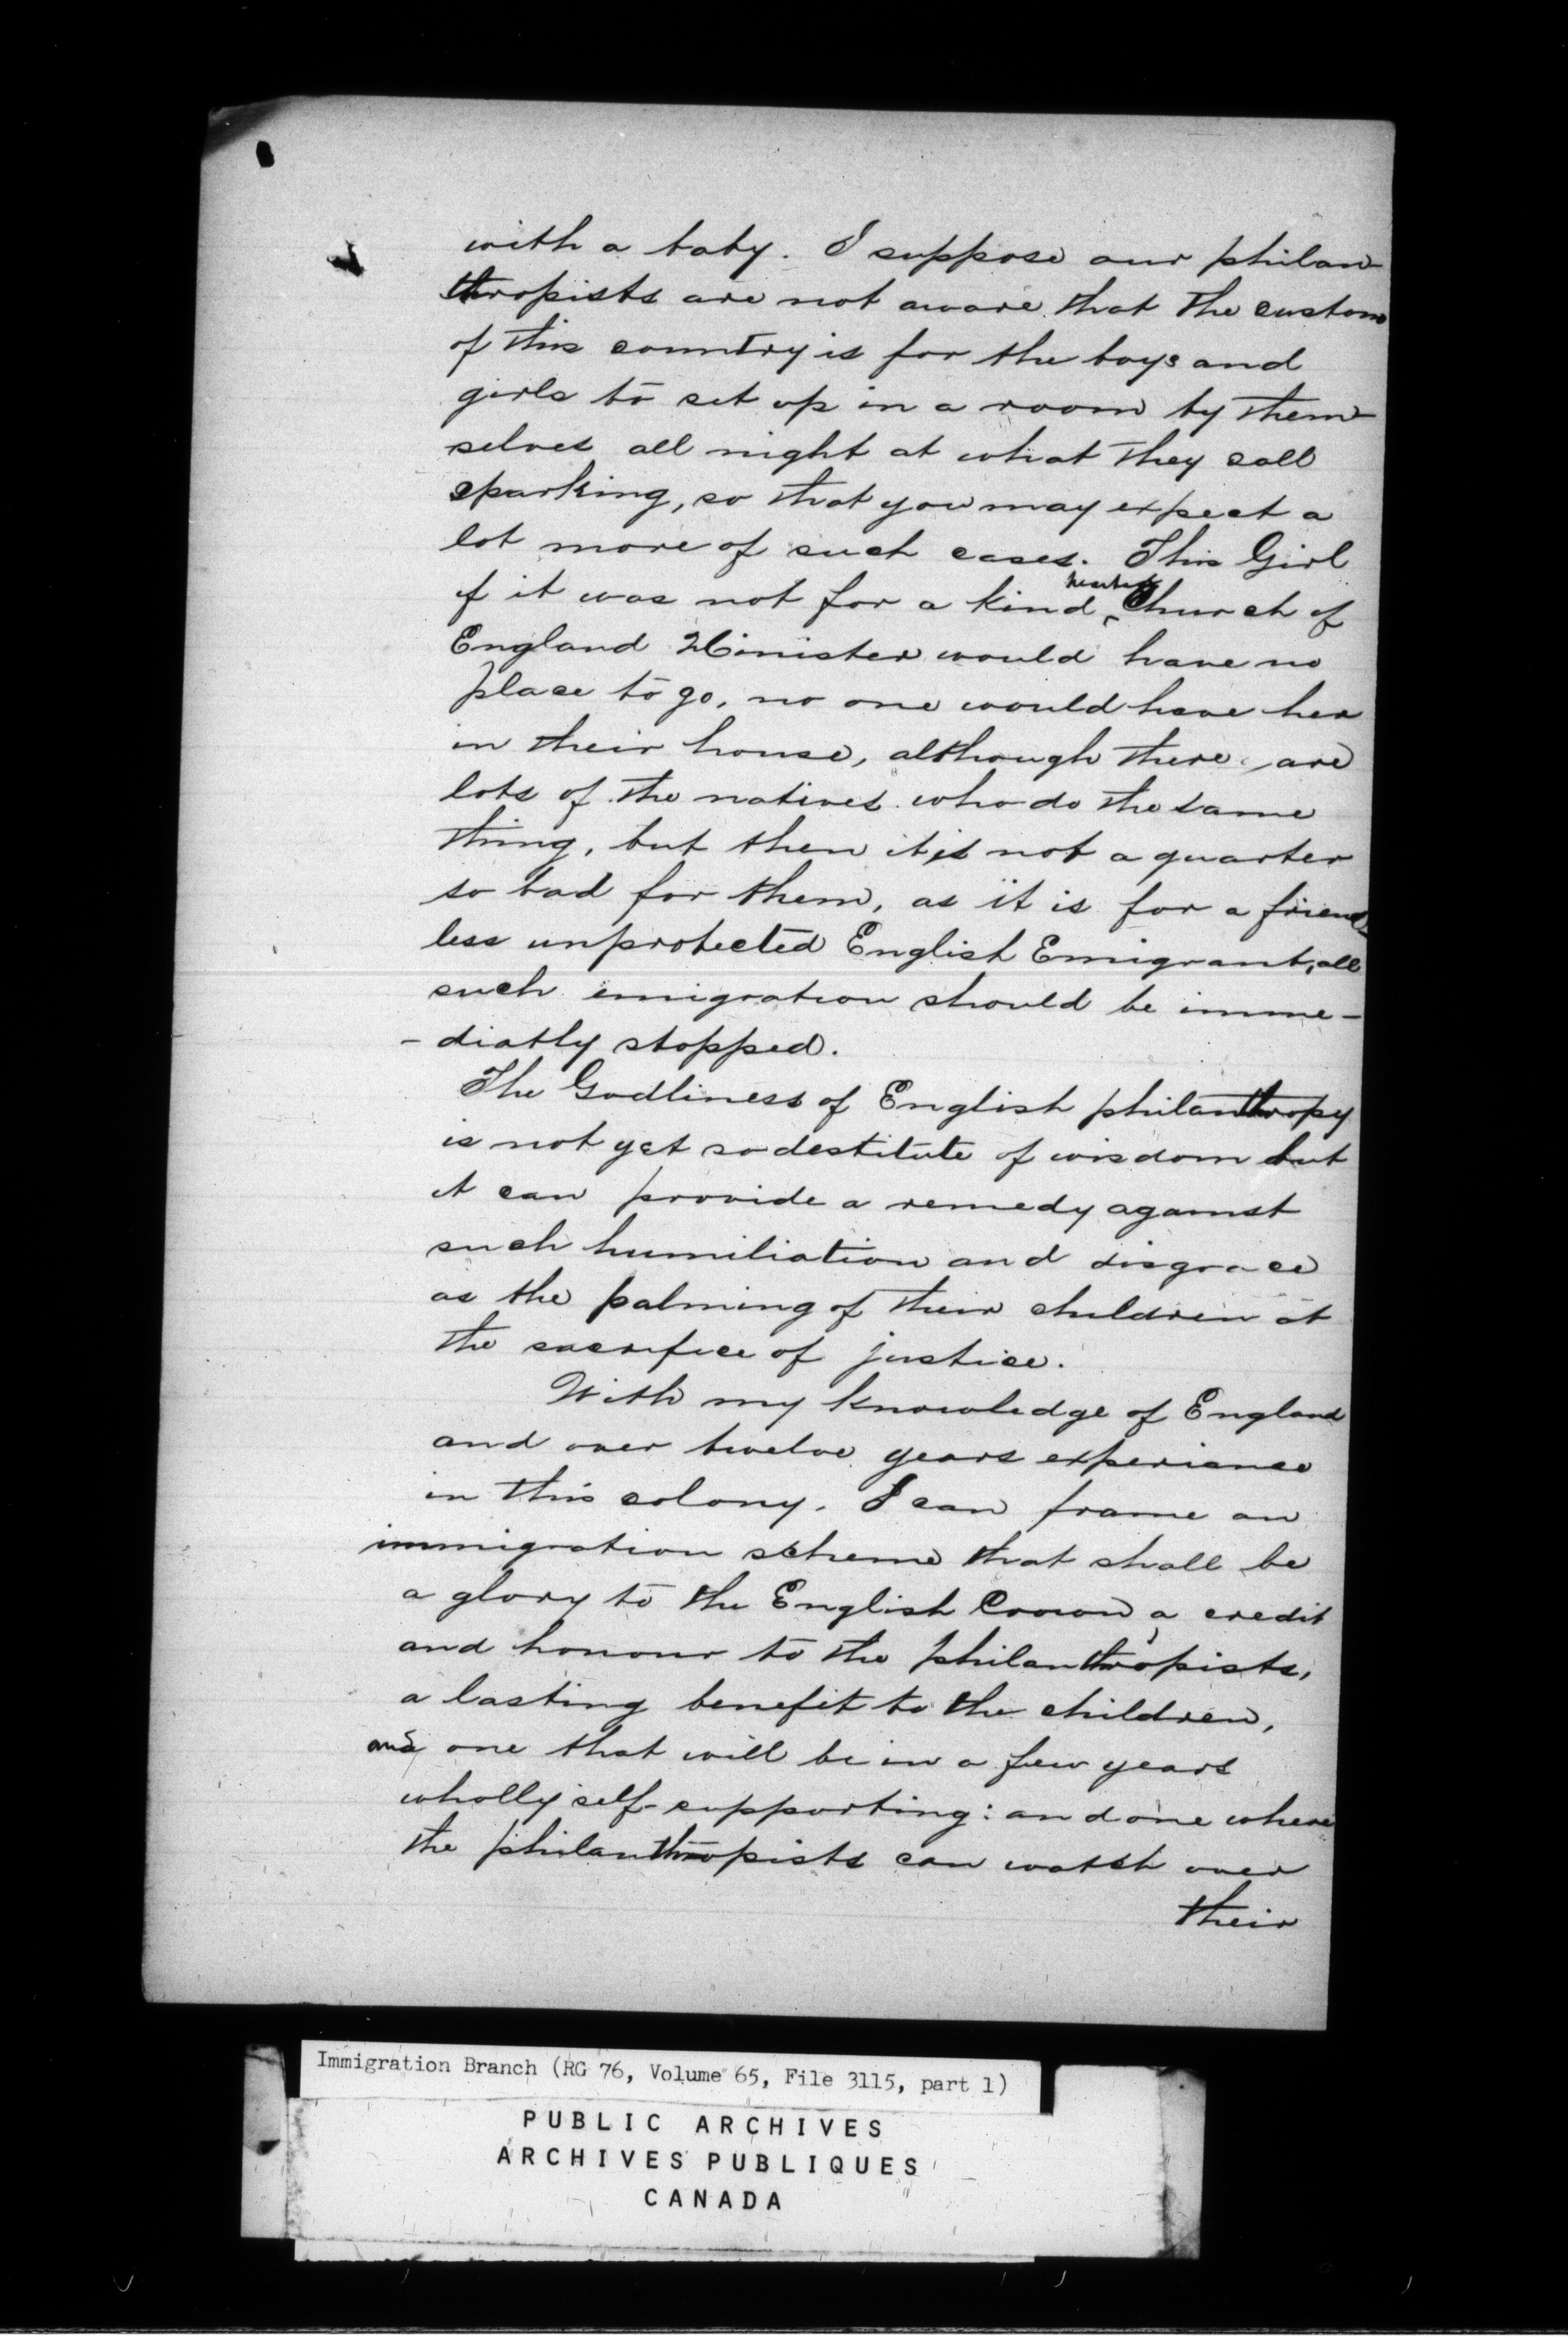 with a baby. I suppose our philan-
thropists are not aware that the custom
of this country is for the boys and
girls to set up in a room by them-
selves all night at what they call
sparking, so that you may expect a
lot more of such cases. This Girl
if it was not for a kind hearted Church of
England Minister would have no
place to go, no one would have her
in their house, although there are
lots of the natives who do the same
thing, but then it is not a quarter
so bad for them, as it is for a friend-
less unprotected English Emigrant, all
such emigration should be imme-
-diatly stopped.
The Godliness of English philanthropy
is not yet so destitute of wisdom but
it can provide a remedy against
such humiliation and disgrace
as the palming of their children at
the sacrifice of justice.
With my knowledge of England
and over twelve years experience
in this colony. I can frame an
immigration scheme that shall be
a glory to the English Crown, a credit
and honour to the philanthropists,
a lasting benefit to the children,
and one that will be in a few years
wholly self-supporting: and one where
the philanthropists can watch over
their
Immigration Branch (RG 76, Volume 65, File 3115, part 1)
PUBLIC ARCHIVES
ARCHIVES PUBLIQUES
CANADA